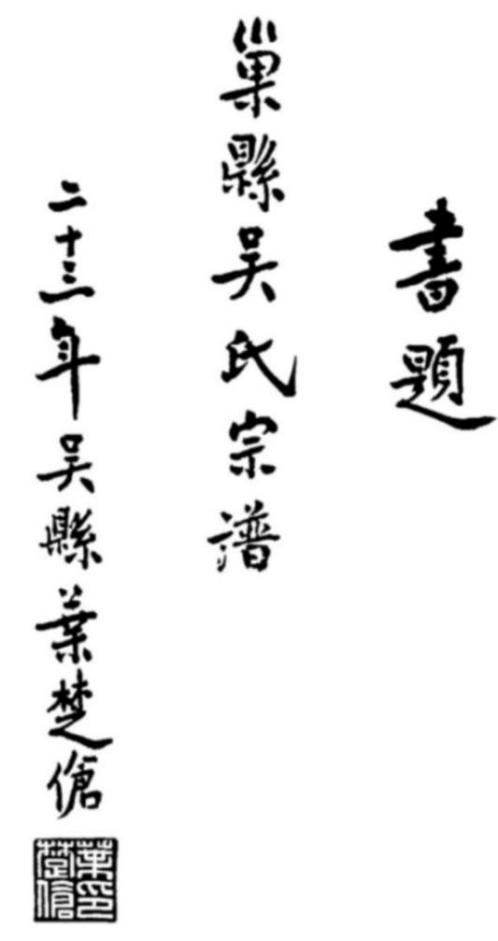 書題
巢縣吴氏宗譜
二十三年吴縣葉楚傖
葉楚傖印